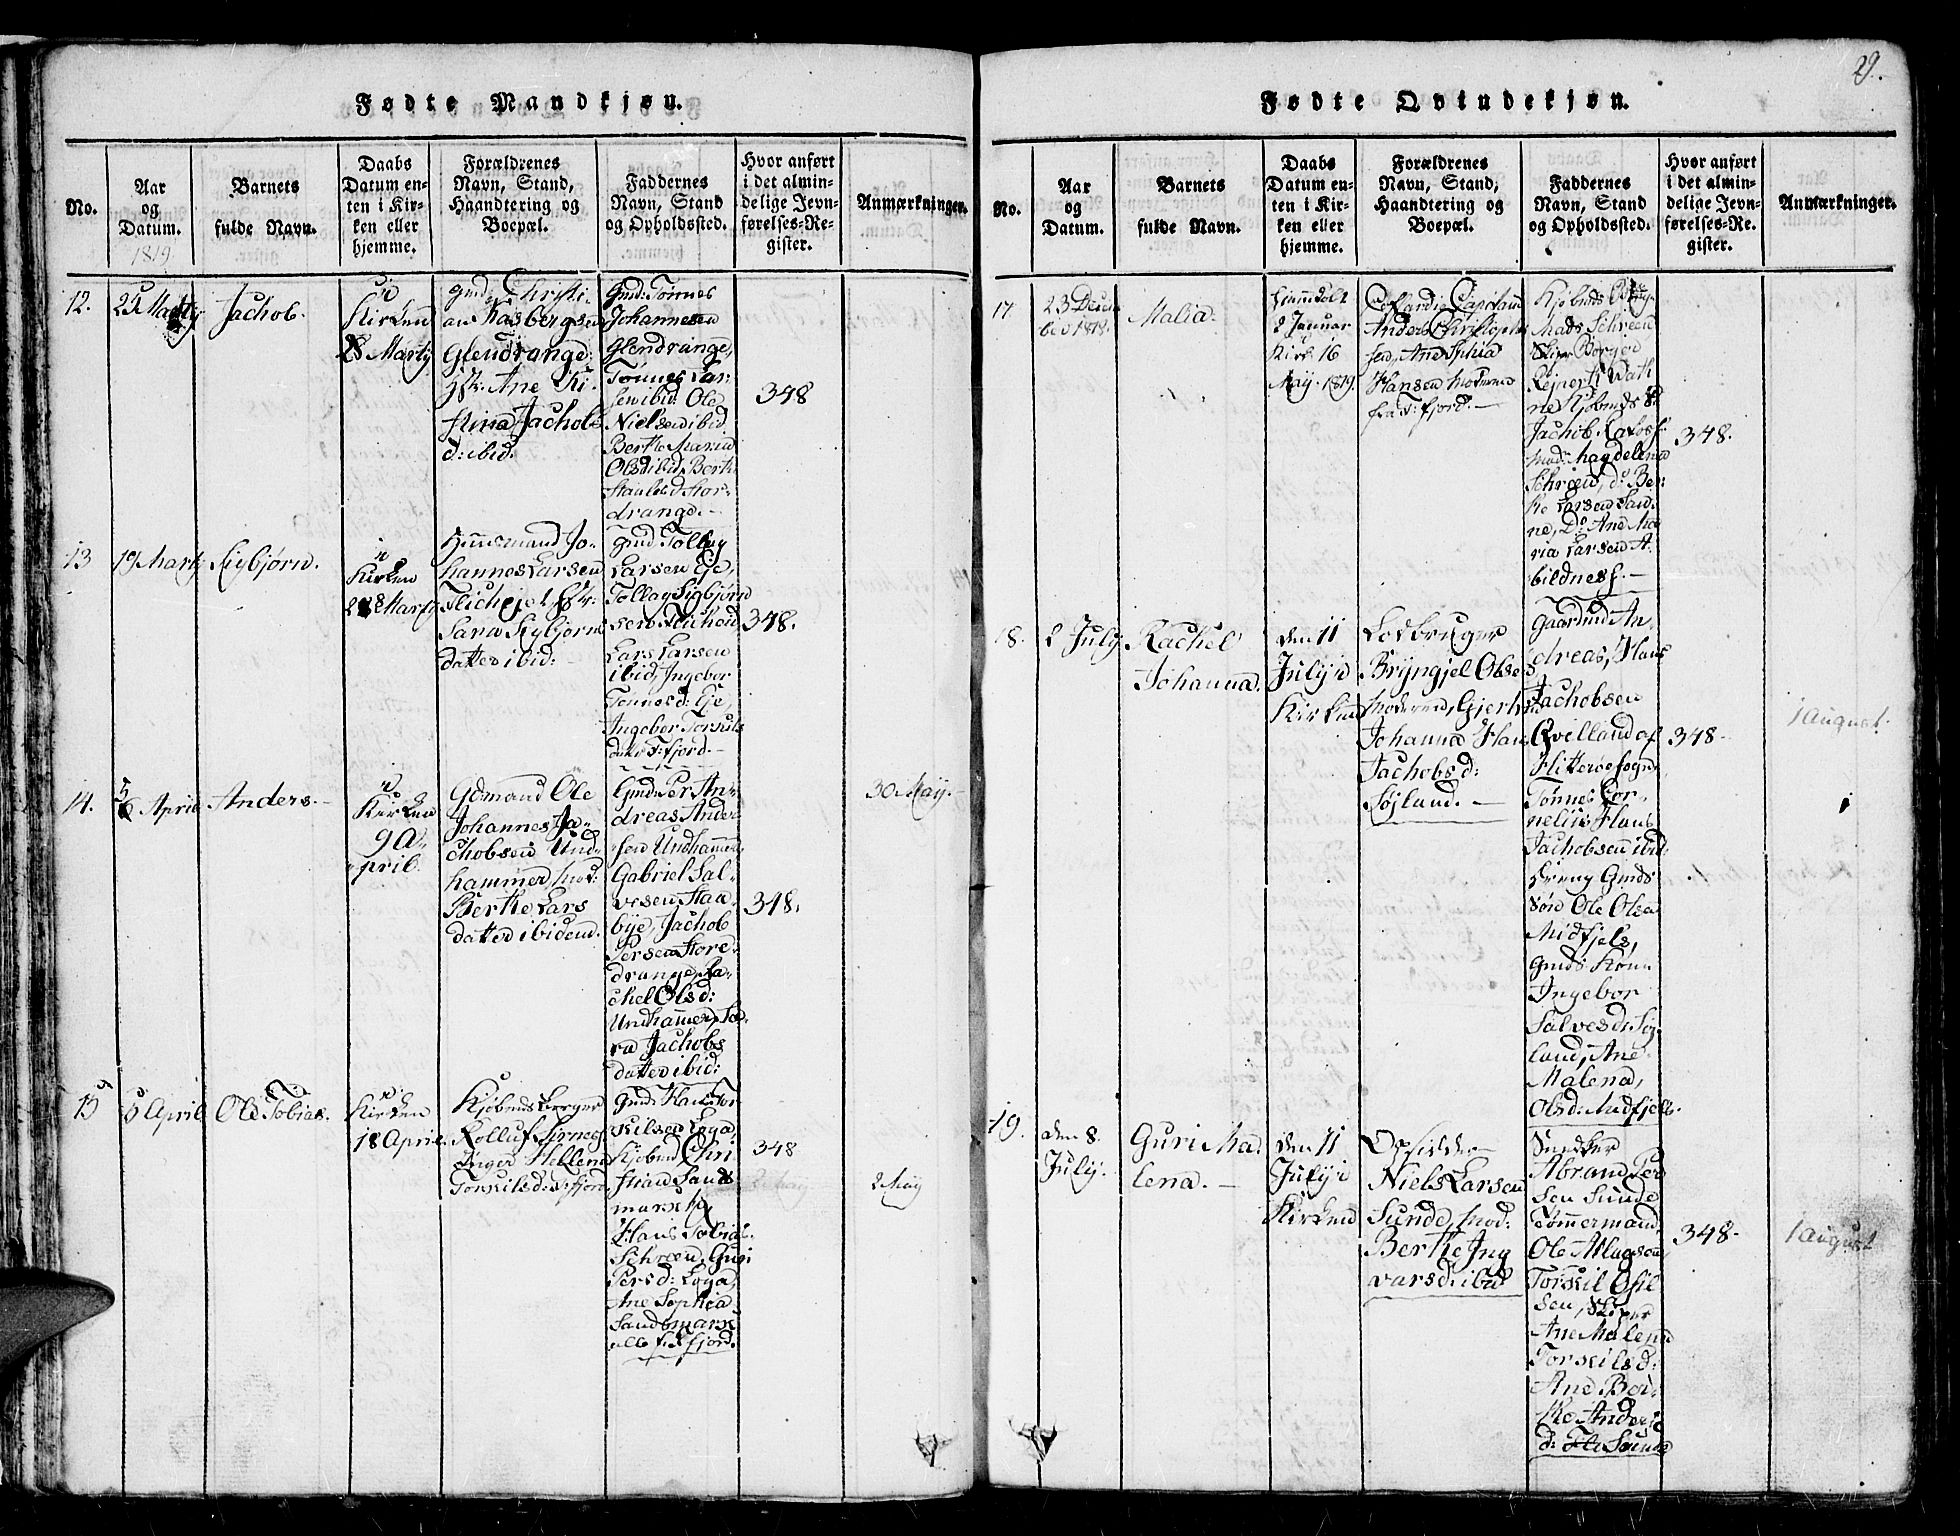 29.
Fødte Mandkjøn.
No.
Aar
og
Datum.
1819
Barnets
fulde Navn.
Daabs
Datum en-
ten i Kir-
ken eller
hjemme.
Forældrenes
Navn, Stand,
Haandtering og
Boepæl.
Faddernes
Navn, Stand
og Opholdssted.
Hvor anført
i det almin-
delige Jevn-
førelses-Re-
gister.
Anmærkninger.
12.
Jachob.
Kirken
28 Marty
gmd: Christi-
an
Glendrange
Ane Ki-
stina Jachobs
d: ibid.
Gmd: Tønnes
Johannesen
Glendrange,
Tønnes Lar-
sen ibid, Ole
Nielsen ibid
Berthe Maria
Olsd ibid, Berth
Stor-
drange.
348
13
19 Marty
Sigbjørn.
Kirken
28 Marty
Huusmand Jo-
hannes Larsen
Sara Sigbjørns
datter ibid:
Gmd: Tollag
Larsen Eje,
Tollag Sigbjørn
sen
Lars Larsen
ibid, Ingebor
Tønnesd: Eje,
Ingebor
datter F: fjord.
348.
14.
5 April
Anders.
Kirken
9 A-
pril.
Gdmand Ole
Johannes Ja-
chobsen Und-
hammer, Mod:
Berthe Lars
datter ibidem.
Gmd: Per An-
dreas Ander
sen Undhammer
Gabriel Sal-
vesen Staa-
bye, Jachob
Persen Store-
drange, Ra-
chel Olsd:
Undhammer, Sa-
ra Jachobs
datter ibid:
348.
30 May.
15
5 April
Ole Tobias.
Kirken
18 April.
Kjøbmd
Rolluf
Inger Hellene
Torkilsd: F: fjord
Gmd: Hans Tor
kilsen Loga,
Kjøbmd Chri
stian Sand
mark,
Hans Tobias
Schrøen, Guri
Persd: Loga,
Ane Sophia
Sandmark
alle f. F: fjord.
348
2 May
Fødte Qvindekjøn.
No.
Aar
og
Datum.
Barnets
fulde Navn.
Daabs
Datum en-
ten i Kir-
ken eller
hjemme.
Forældrenes
Navn, Stand,
Haandtering og
Boepæl.
Faddernes
Navn, Stand
og Opholdssted.
Hvor anført
i det almin-
delige Jevn-
førelses-Re-
gister.
Anmærkninger.
17.
23 Decem
ber 1818.
Malia.
Hiemdøbt
2 Januar
Kirk: 16
May. 1819.
Capitain
Anders Christopher
sen, Ane Sophia
Hansen Moderen
fra F: fjord.
Kjøbmds
Mads Schrøen
Rejnert Wath
ne Kjøbmds
Jachob
Mad: Magdelena
Schrøen, d: Ber:
the Larsen Sand
ne, D: Ane Ma
ria Larsen A-
bildnes f.
348.
18.
2 July
Rachel
Johanna.
den 11
July i
Kirken
Lodbruger
Bryngjel Olsen,
Moderen, Gjerthru
Johanna Hans
Jachobsd:
Søjland.
Gaardmd An-
dreas, Hans
Jachobsen
Qvelland af
Hitterøe sogn,
Tønnes Cor-
nelius Hans
Jachobsen ibid:
Dreng Gmds
Søn Ole Olsen
Midfjels,
Gmds Kone
Ingebor
Salvesd: Søj
land, Ane
Malena,
Olsd: Midfjell.
348.
1 August.
19.
den 8.
July.
Guri Ma-
lena.
den 11
July i
Kirken
Opsidder
Niels Larsen
Sunde, Mod:
Berthe Ing
varsd: ibid
Snedker
Abram Per
sen Sunde
Tømmermand
Ole Aslagsen,
Torkil Osel
sen,
Ane Malena
Torkilsd:
Ane Ber-
the Anders
d: Sunde
348.
1 August